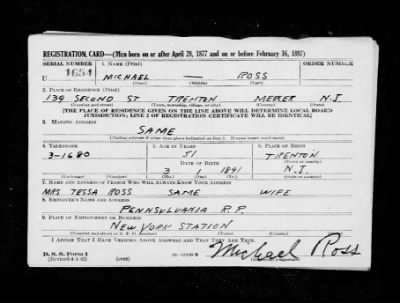 REGISTRATION CARD—(Men born on or after April 28, 1877 and on or before February 16, 1897)
SERIAL NUMBER 1. NAME (Print) ORDER NUMBER
U 1654 MICHAEL — ROSS
2. PLACE OF RESIDENCE (Print)
139 SECOND ST TRENTON MERCER N.J.
(Number and street) (Town, township, village, or city) (County) (State)
[THE PLACE OF RESIDENCE GIVEN ON THE LINE ABOVE WILL DETERMINE LOCAL BOARD
JURISDICTION; LINE 2 OF REGISTRATION CERTIFICATE WILL BE IDENTICAL]
3. MAILING ADDRESS
SAME
(Mailing address if other than place indicated on line 2. If same insert word same)
4. TELEPHONE 5. AGE IN YEARS 6. PLACE OF BIRTH
3-1680 51 TRENTON
DATE OF BIRTH (Town or county)
3 1 1891 N.J.
(Exchange) (Number) (Mo.) (Day) (Yr.) (State or country)
7. NAME AND ADDRESS OF PERSON WHO WILL ALWAYS KNOW YOUR ADDRESS
MRS TESSA ROSS SAME WIFE
8. EMPLOYER'S NAME AND ADDRESS
PENNSYLVANIA R.R.
9. PLACE OF EMPLOYMENT OR BUSINESS
NEW YORK STATION
(Number and street or R. F. D. number) (Town) (County) (State)
I AFFIRM THAT I HAVE VERIFIED ABOVE ANSWERS AND THAT THEY ARE TRUE.
D. S. S. Form 1
(Revised 4-1-42) (over) Michael Ross